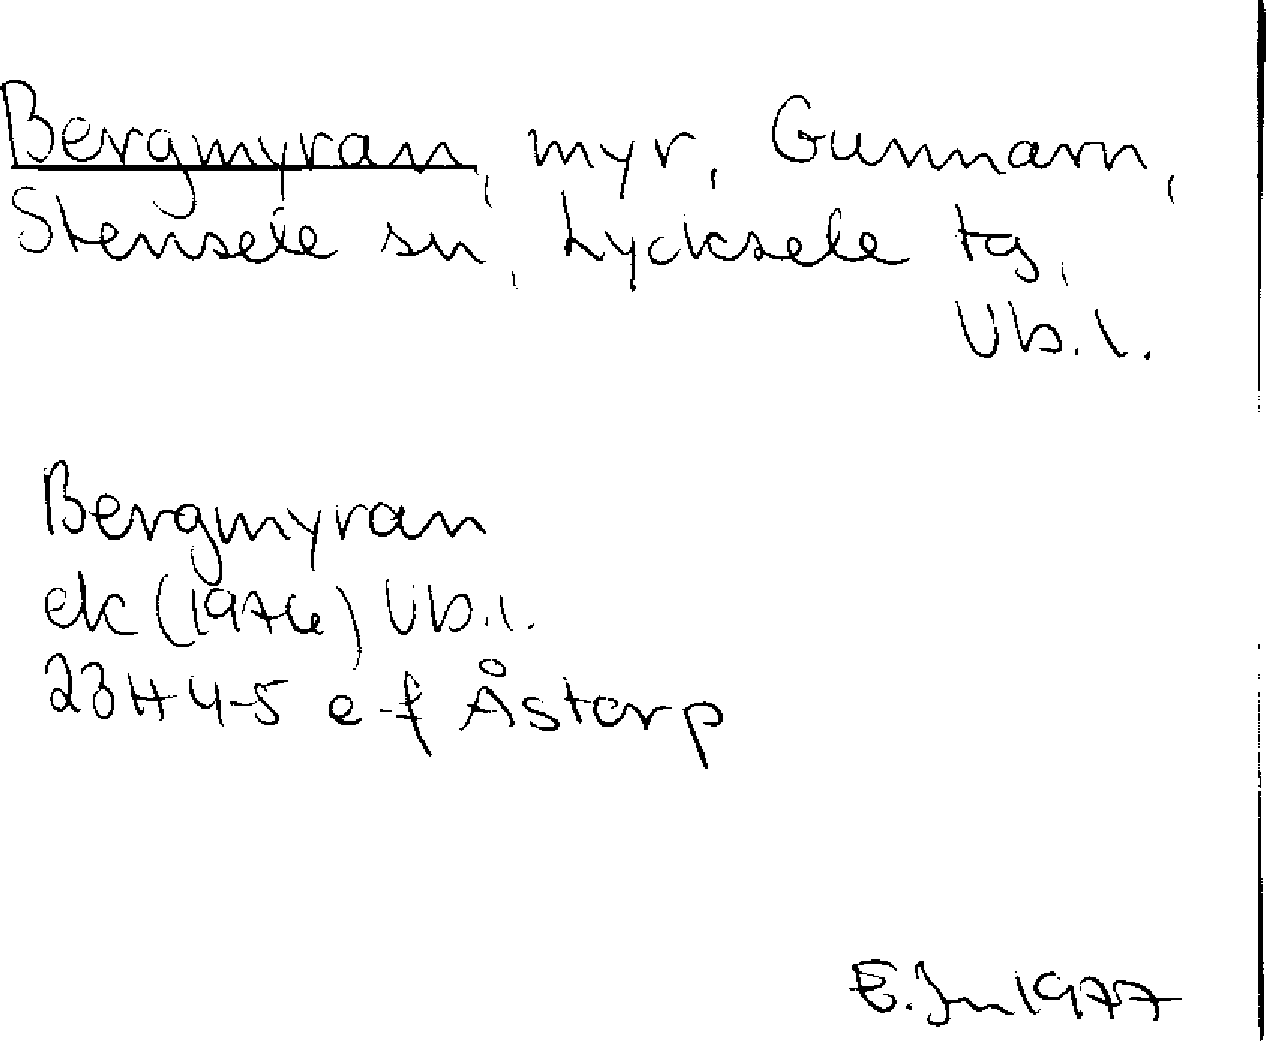 Bergmyran, myr, Gunnarn,
Stensele sn, Lycksele tg,
Vb.l.
Bergmyran
ek (1976) Vb.l.
23H 4-5 e-f Åstorp
E.Jn 1977